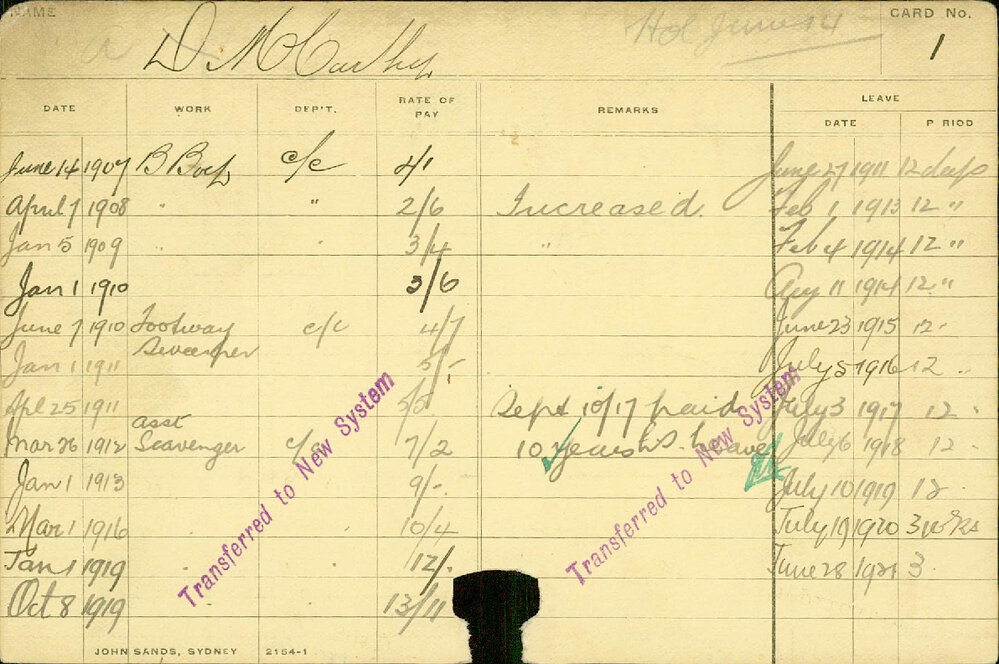 NAME
D McCarthy
Hol June 14
CARD No.
1
DATE WORK DEP'T. RATE OF PAY REMARKS LEAVE
DATE P RIOD
June 14 1907 B Boy c/c June 27 1911 12 days
April 7 1908 " " 2/6 Increased. Feb 1 1913 12 "
Jan 5 1909 " " 3/4 " Feb 4 1914 12 "
Jan 1 1910 3/6 Aug 11 1914 12 "
June 7 1910 Footway Sweeper c/c 4/7 June 23 1915 12 "
Jan 1 1911 5/- July 5 1916 12 "
Apl 25 1911 Sept 10/17 paid July 3 1917 12 "
Mar 26 1912 asst Scavenger c/c 7/2 10 years L.S. Leave July 6 1918 12 "
Jan 1 1913 9/- July 10 1919 12
Mar 1 1916 10/4 July 19 1920 3 wks
Jan 1 1919 12/- June 28 1921 3
Oct 8 1919 13/11
Transferred to New System
Transferred to New System
JOHN SANDS, SYDNEY 2154-1